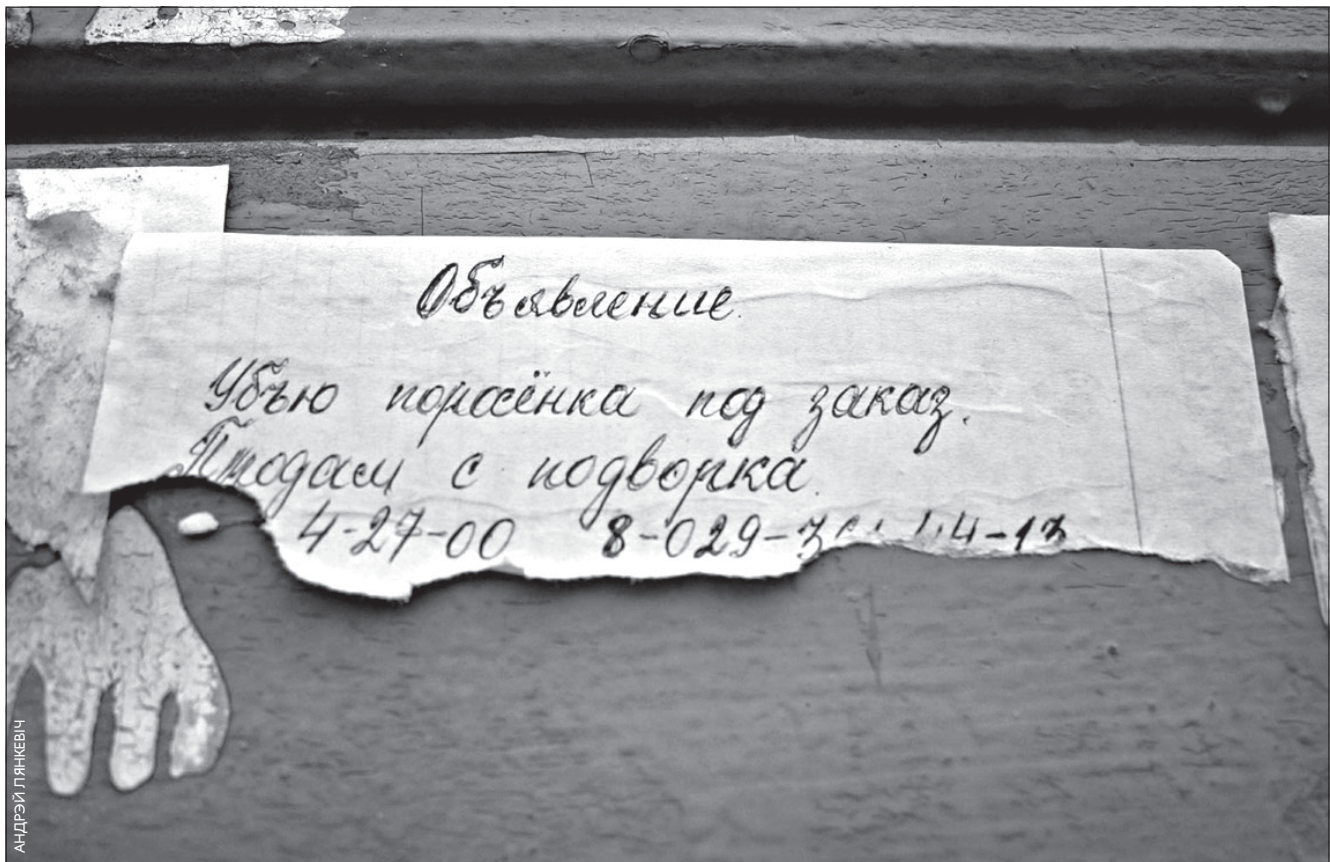 Объявление.
Убъю поросёнка под заказ.
Продам с подворка.
4-27-00 8-029-
АНДРЭЙ ЛЯНКЕВІЧ